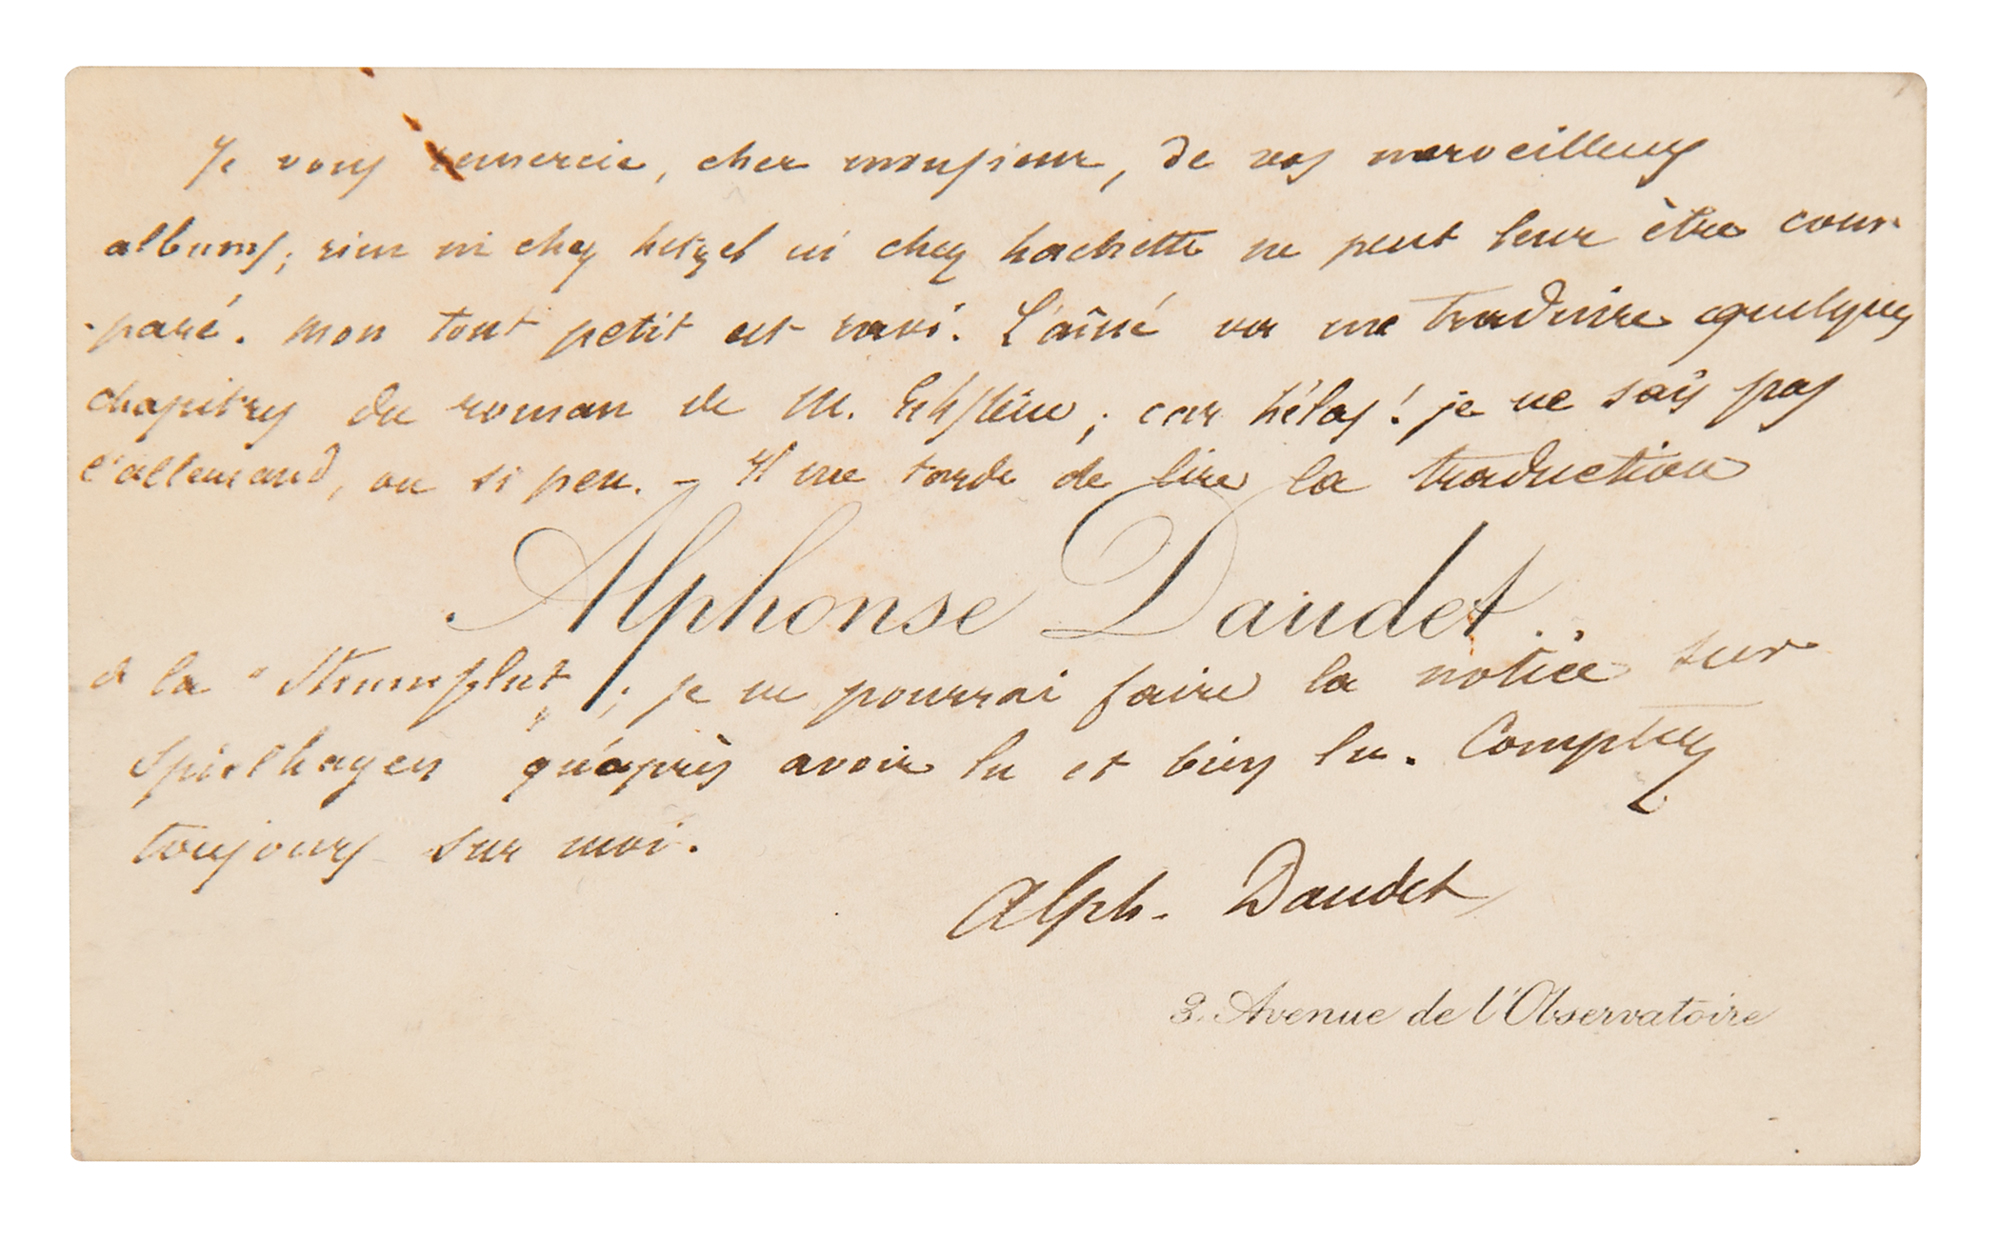 Je vous remercie, cher monsieur, de vos merveilleux
albums; rien ni chez hetzel ni chez hachette ne peut leur être com-
-paré. mon tout petit est ravi. L'aîné va me traduire quelques
chapitres du roman de M. Ekstein; car hélas! je ne sais pas
l'allemand, ou si peu. - Il me tarde de lire la traduction
Alphonse Daudet
d la "Sturmflut"; je ne pourrai faire la notice sur
Spielhagen qu'après avoir lu et bien lu. Comptez
toujours sur moi.
Alph. Daudet
3. Avenue de l'Observatoire